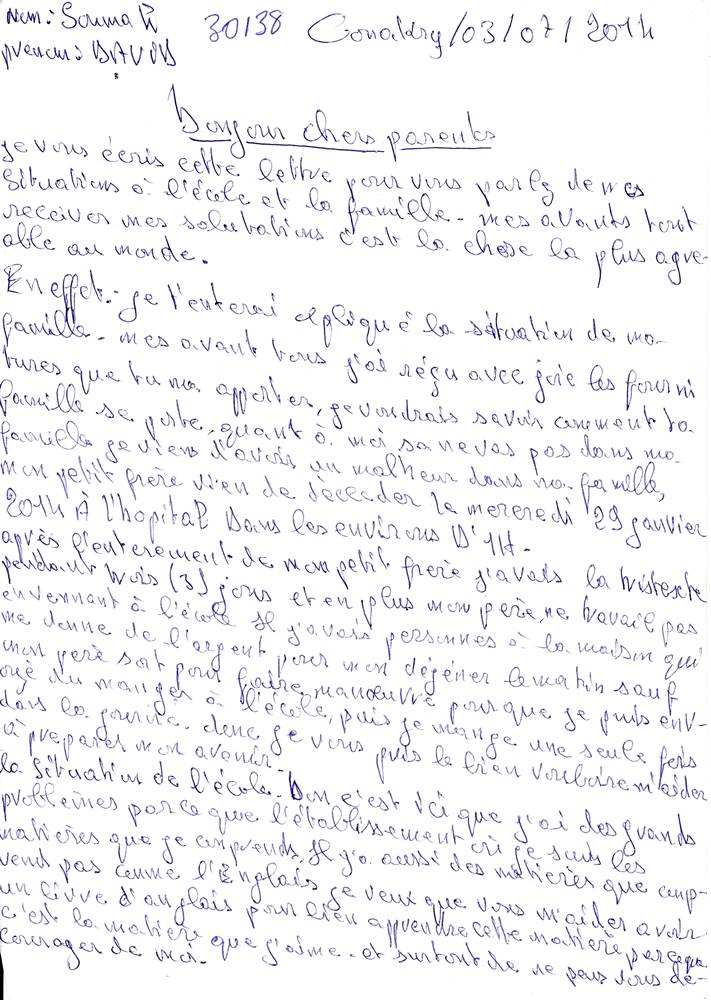 Nom: Soumah
30138
Conakry/03/07/2014
prenom: DAVID
Bonjour chers parents
je vous écris cette lettre pour vous parlez de mes
Situations à l'école et la famille - mes avants tout
recever mes salutations c'est la chose la plus agre-
able au monde.
En effet - je t'enterai expliqué la situation de ma
famille - mes avant tous j'ai réçu avec joie les fourni
tures que tu ma apporter, je voudrais savoir comment ta
famille se porte, quant à moi sa ne vas pas dans ma
famille je viens d'avoir un malheur dans na famille,
mon petit frère vien de décéder le mercredi 29 janvier
2014 À l'hopital Dans les environs D'1H-
après l'enterement de mon petit frère j'avais la tristesse
pendant trois (3) jours et en plus mon père, ne travail pas
envennant à l'école Il y'avais personnes à la maison qui
me donne de l'argent pour mon déjéner le matin sauf
mon père sort pour faire manœuvre pour que je puis env-
oyé du manger à l'école, puis je mange une seule fois
dans la journée. donc je vous puis le bien vouloire m'aider
à preparer mon avenir.
la Situation de l'école. Bon c'est ici que j'ai des grands
problèmes parce que l'établissement où je suis les
matières que je comprends. Il y'a aussi des matières que comp-
rend pas comme l'Englais je veux que vous m'aider avoir
un livre d'anglais pour bien apprendre cette matière parceque
c'est la matière que j'aime - et surtout de ne pas vous dé-
courager de moi.